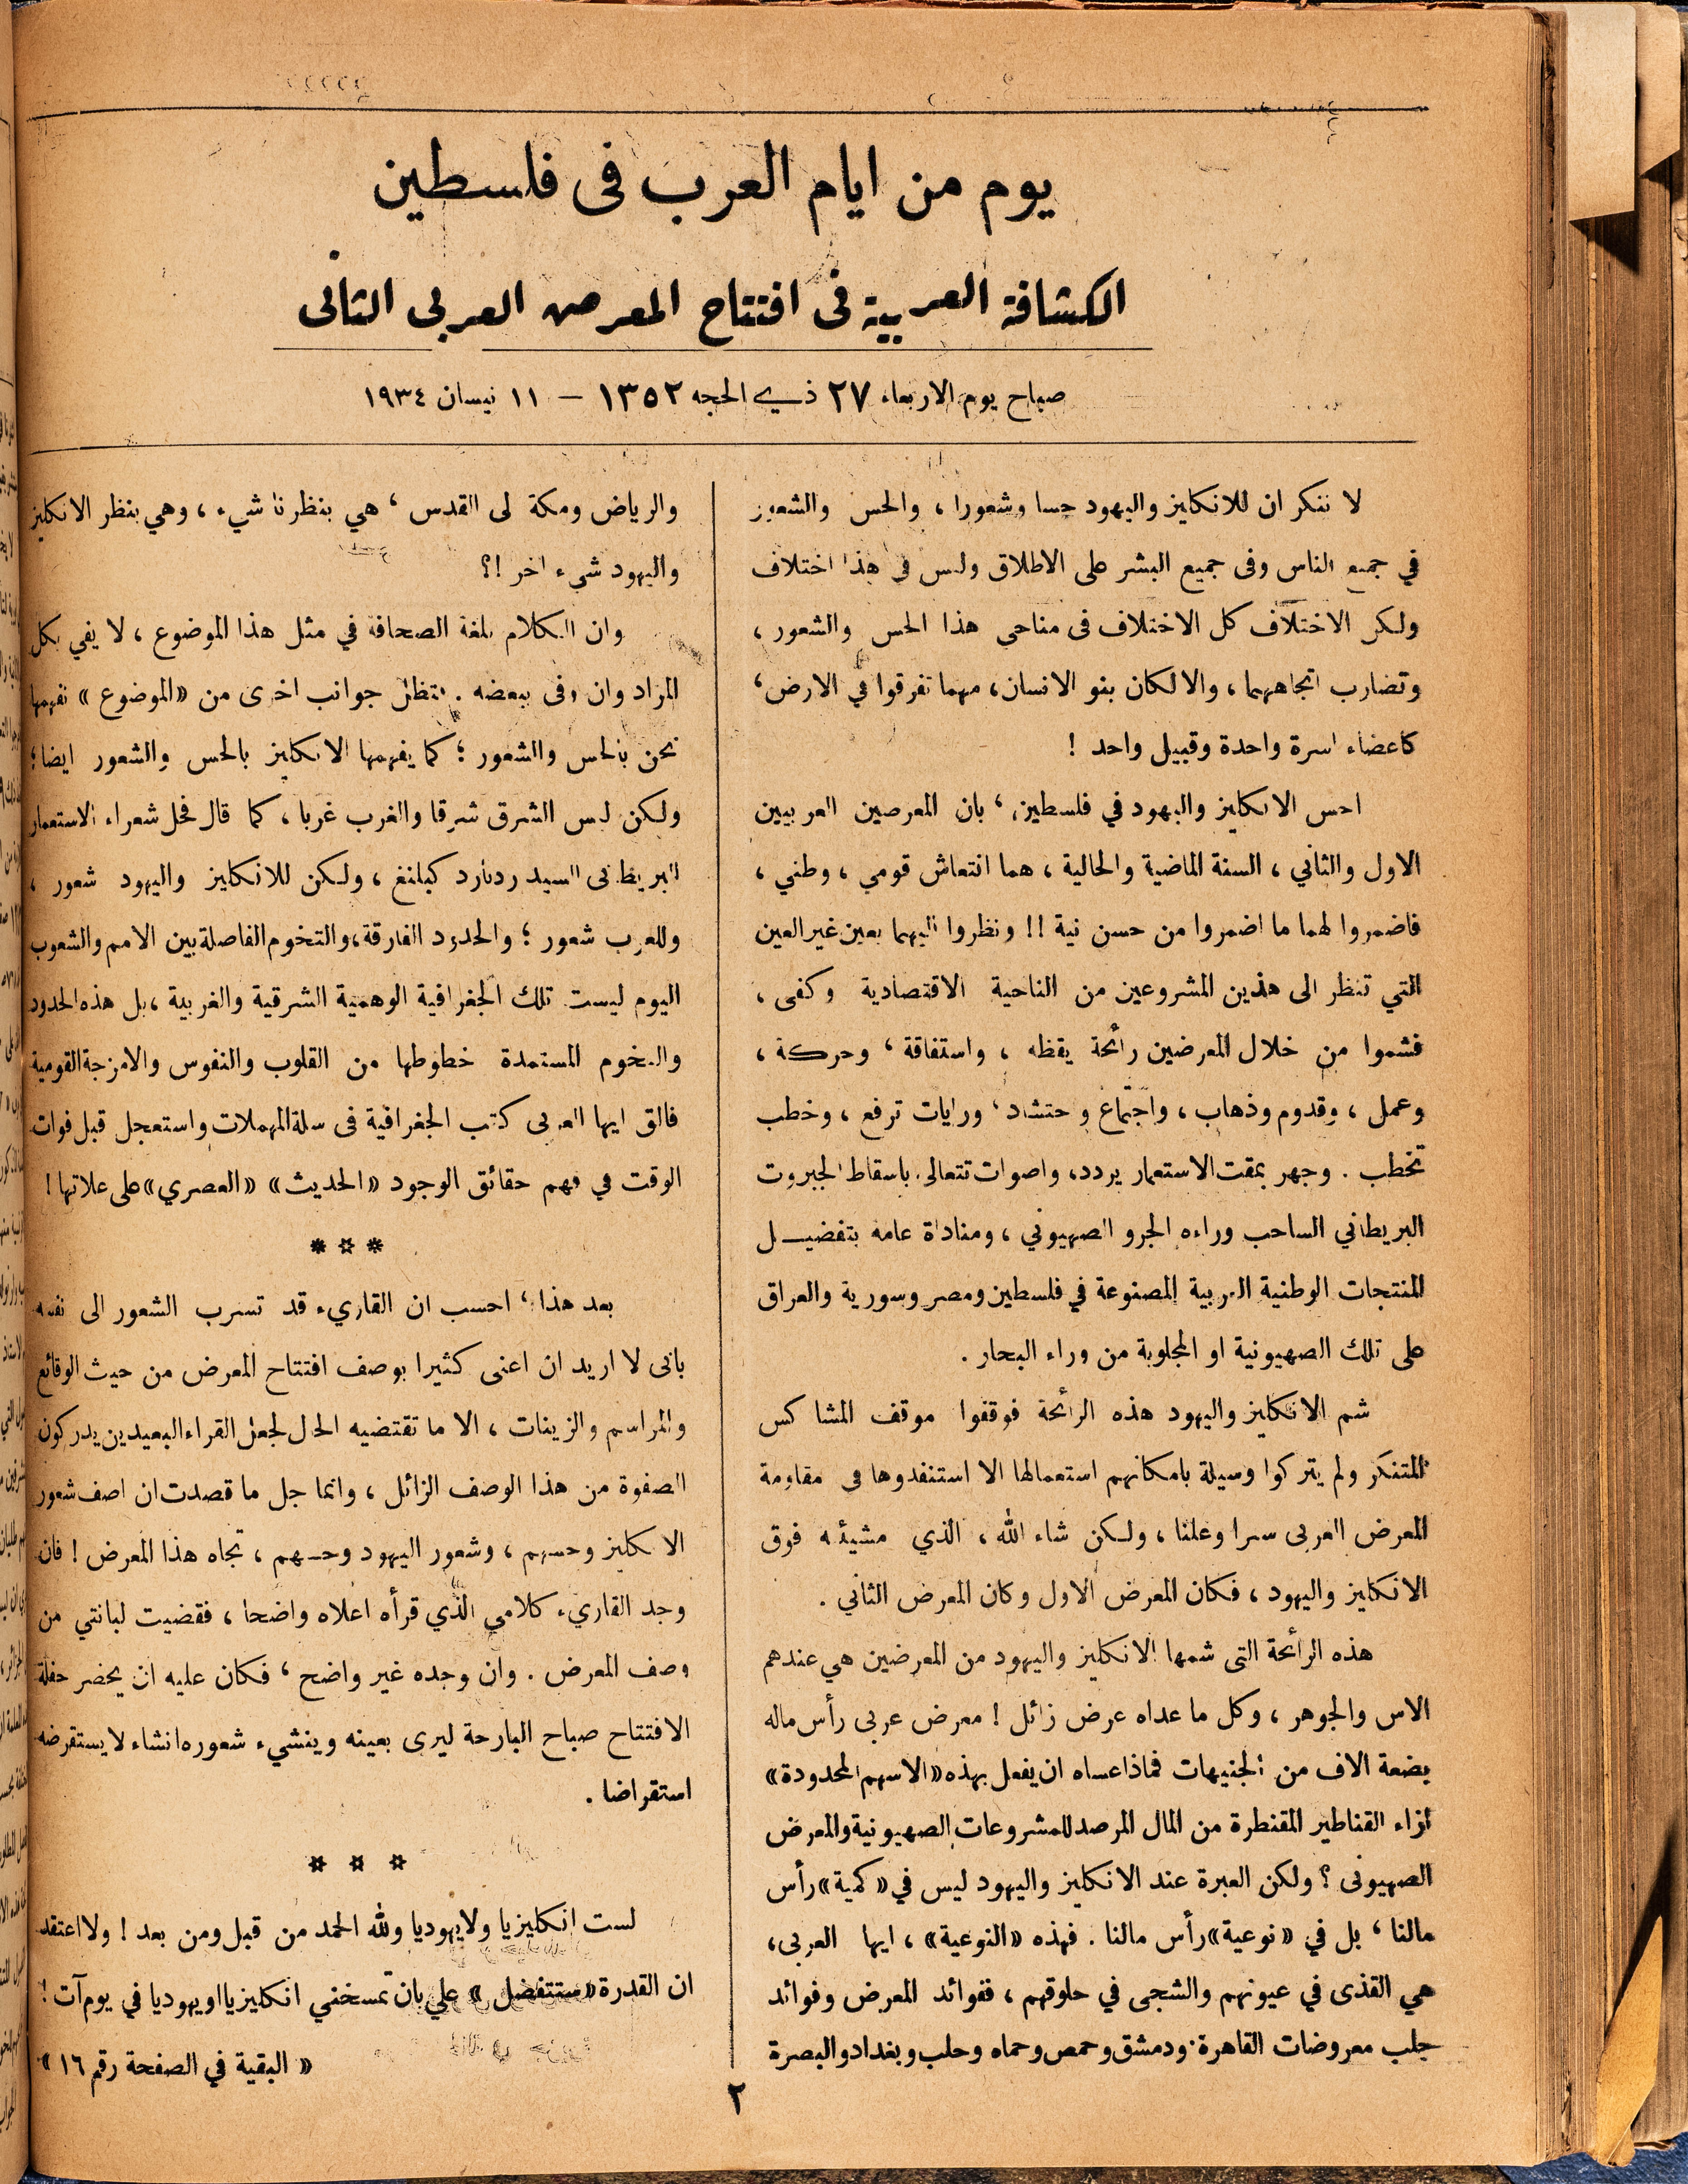 يوم من ايام العرب فى فلسطين
الكشافة العربية فى افتتاح المعرض العربى الثانى
صباح يوم الاربعاء ٢٧ ذي الحجه ١٣٥٢ – ١١ نيسان ١٩٣٤
لا ننكر ان للانكليز واليهود حسا وشعورا، والحس والشعور
في جميع الناس وفى جميع البشر على الاطلاق وليس في هذا اختلاف
ولكن الاختلاف كل الاختلاف فى مناحى هذا الحس والشعور،
وتضارب اتجاههما، والا لكان بنو الانسان، مهما تفرقوا في الارض،
كاعضاء اسرة واحدة وقبيل واحد !
احس الانكليز واليهود في فلسطين، بان المعرضين العربيين
الاول والثاني، السنة الماضية والحالية، هما انتعاش قومي، وطني،
فاضمروا لهما ما اضمروا من حسن نية !! ونظروا اليهما بعين غير العين
التي تنظر الى هذين المشروعين من الناحية الاقتصادية وكفى،
فشموا من خلال المعرضين رائحة يقظه، واستفاقة، وحركة،
وعمل، وقدوم وذهاب، واجتماع واحتشاد، ورايات ترفع، وخطب
تخطب. وجهر بمقت الاستعمار يردد، واصوات تتعالى باسقاط الجبروت
البريطاني الساحب وراءه الجرو الصهيوني، ومناداة عامه بتفضيـــل
المنتجات الوطنية العربية المصنوعة في فلسطين ومصر وسورية والعراق
على تلك الصهيونية او المجلوبة من وراء البحار.
شم الانكليز واليهود هذه الرائحة فوقفوا موقف المشاكس
المتنكر ولم يتركوا وسيلة بامكانهم استعمالها الا استنفدوها فى مقاومة
المعرض العربى سرا وعلنا، ولكن شاء الله، الذي مشيئته فوق
الانكليز واليهود، فكان المعرض الاول وكان المعرض الثاني.
هذه الرائحة التى شمها الانكليز واليهود من المعرضين هي عندهم
الاس والجوهر، وكل ما عداه عرض زائل ! معرض عربى رأس ماله
بضعة الاف من الجنيهات فماذا عساه ان يفعل بهذه «الاسهم المحدودة»
ازاء القناطير المقنطرة من المال المرصد للمشروعات الصهيونية والمعرض
الصهيونى ؟ ولكن العبرة عند الانكليز واليهود ليس في «كمية» رأس
مالنا، بل في «نوعية» رأس مالنا. فهذه «النوعية»، ايها العربى،
هي القذى في عيونهم والشجى في حلوقهم، ففوائد المعرض وفوائد
جلب معروضات القاهرة ودمشق وحمص وحماه وحلب وبغداد والبصرة
والرياض ومكة لى القدس، هي بنظرنا شيء، وهي بنظر الانكليز
واليهود شيء اخر !؟
وان الكلام بلغة الصحافة في مثل هذا الموضوع، لا يفي بكل
المراد وان وفى ببعضه. فتظل جوانب اخرى من «الموضوع» نفهمها
نحن بالحس والشعور ؛ كما يفهمها الانكليز بالحس والشعور ايضا ؛
ولكن ليس الشرق شرقا والغرب غربا، كما قال فحل شعراء الاستعمار
البريطانى السيد رديارد كبلنغ، ولكن للانكليز واليهود شعور،
وللعرب شعور ؛ والحدود الفارقة، والتخوم الفاصلة بين الامم والشعوب
اليوم ليست تلك الجغرافية الوهمية الشرقية والغربية، بل هذه الحدود
والتخوم المستمدة خطوطها من القلوب والنفوس والامزجة القومية
فالق ايها العربى كتب الجغرافية فى سلة المهملات واستعجل قبل فوات
الوقت في فهم حقائق الوجود «الحديث» «العصري» على علاتها !
* * *
بعد هذا، احسب ان القاريء قد تسرب الشعور الى نفسه
بانى لا اريد ان اعنى كثيرا بوصف افتتاح المعرض من حيث الوقائع
والمراسم والزينات، الا ما تقتضيه الحال لجعل القراء البعيدين يدركون
الصفوة من هذا الوصف الزائل، وانما جل ما قصدت ان اصف شعور
الانكليز وحسهم، وشعور اليهود وحسهم، تجاه هذا المعرض ! فان
وجد القاريء كلامي الذي قرأه اعلاه واضحا، فقضيت لبانتي من
وصف المعرض. وان وجده غير واضح، فكان عليه ان يحضر حفلة
الافتتاح صباح البارحة ليرى بعينه وينشيء شعوره انشاء لا يستقرضه
استقراضا.
* * *
لست انكليزيا ولا يهوديا ولله الحمد من قبل ومن بعد ! ولا اعتقد
ان القدرة «ستتفضل» علي بان تمسخني انكليزيا او يهوديا في يوم آت !
« البقية في الصفحة رقم ١٦ »
٢